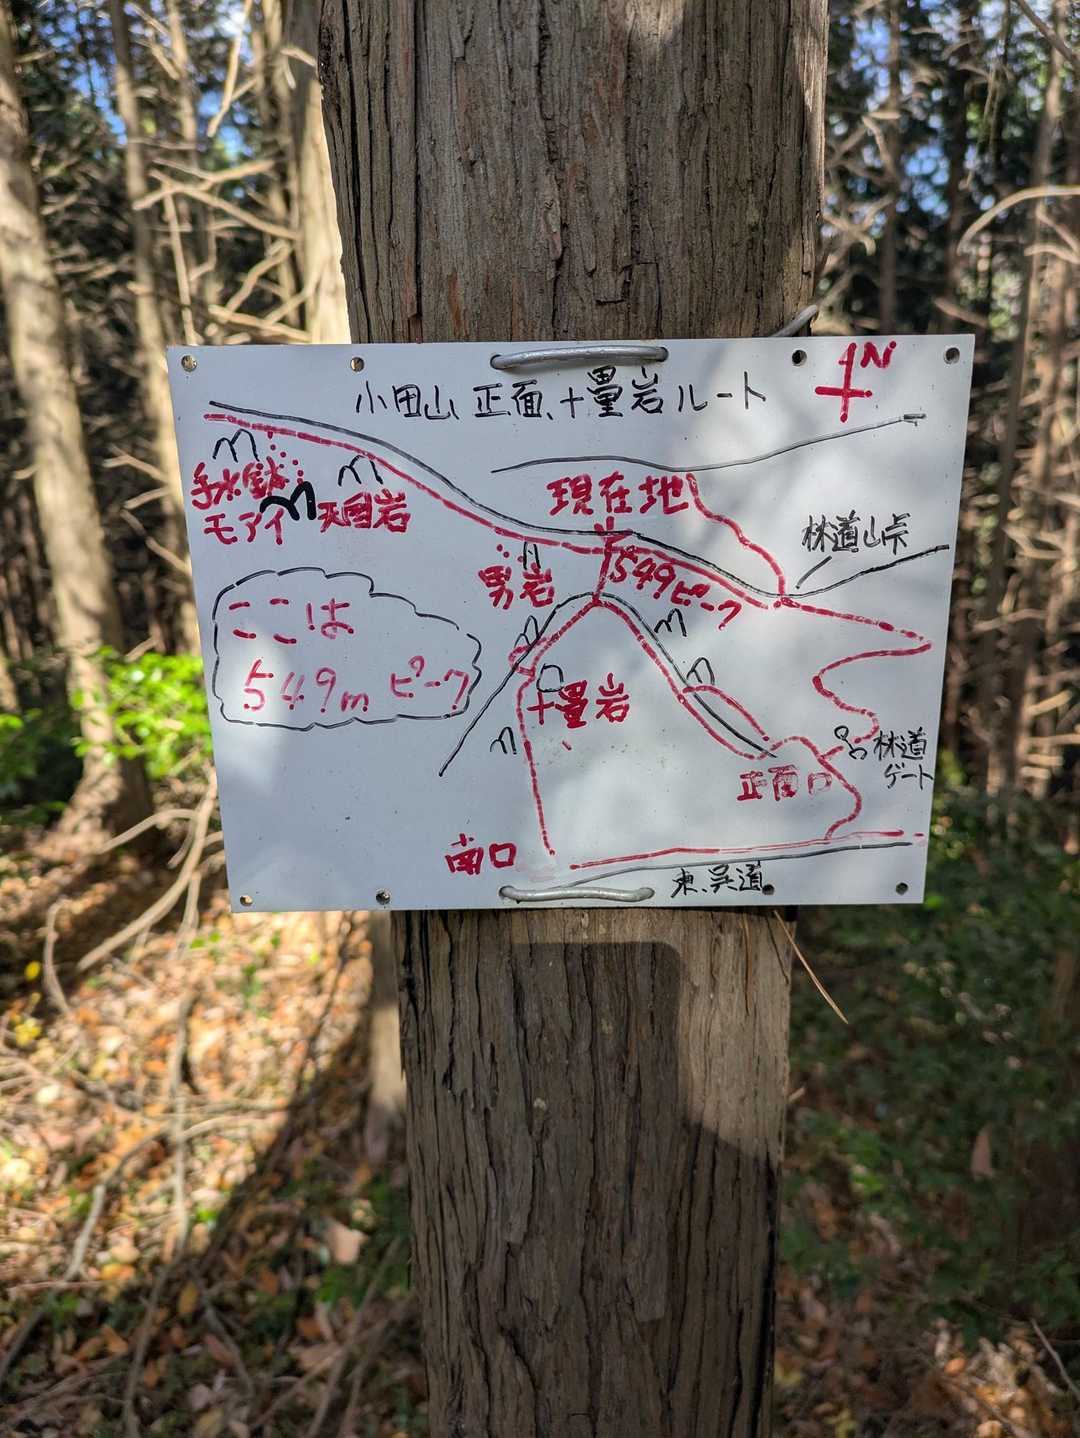 小田山、正面、十畳岩ルート
N
手水鉢
モアイ
天団岩
現在地
林道山峠
男岩
549ピーク
ここは
549mピーク
十畳岩
正面口
林道
ゲート
南口
東、呉道